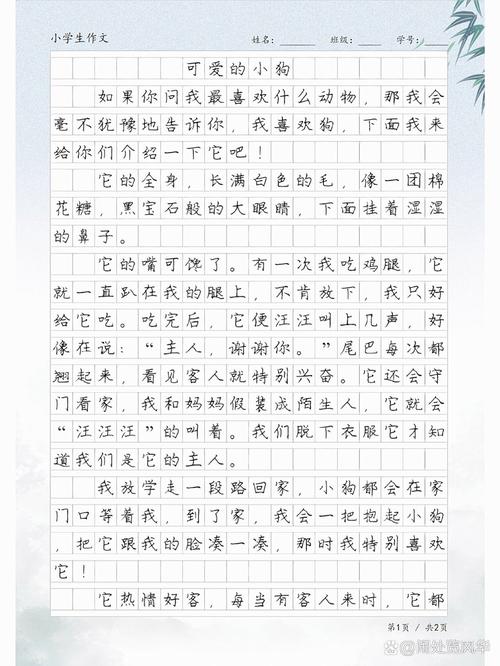 小学生作文 姓名：______ 班级：______ 学号：______
可爱的小狗
如果你问我最喜欢什么动物，那我会
毫不犹豫地告诉你，我喜欢狗，下面我来
给你们介绍一下它吧！
它的全身，长满白色的毛，像一团棉
花糖，黑宝石般的大眼睛，下面挂着湿湿
的鼻子。
它的嘴可馋了。有一次我吃鸡腿，它
就一直趴在我的腿上，不肯放下，我只好
给它吃。吃完后，它便汪汪叫上几声，好
像在说：“主人，谢谢你。”尾巴每次都
翘起来，看见客人就特别兴奋。它还会守
门看家，我和妈妈假装成陌生人，它就会
“汪汪汪”的叫着。我们脱下衣服它才知
道我们是它的主人。
我放学走一段路回家，小狗都会在家
门口等着我，到了家，我会一把抱起小狗
，把它跟我的脸凑一凑，那时我特别喜欢
它！
它热情好客，每当有客人来时，它都
第1页 / 共2页